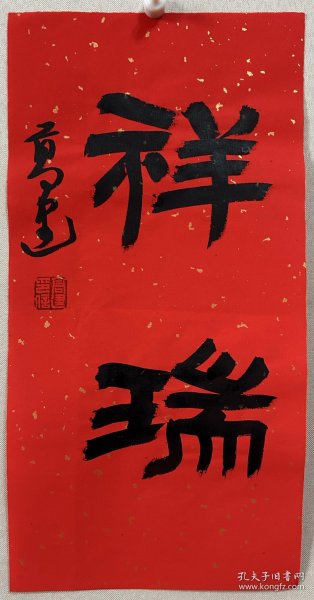 祥瑞
孔夫子旧书网
www.kongfz.com